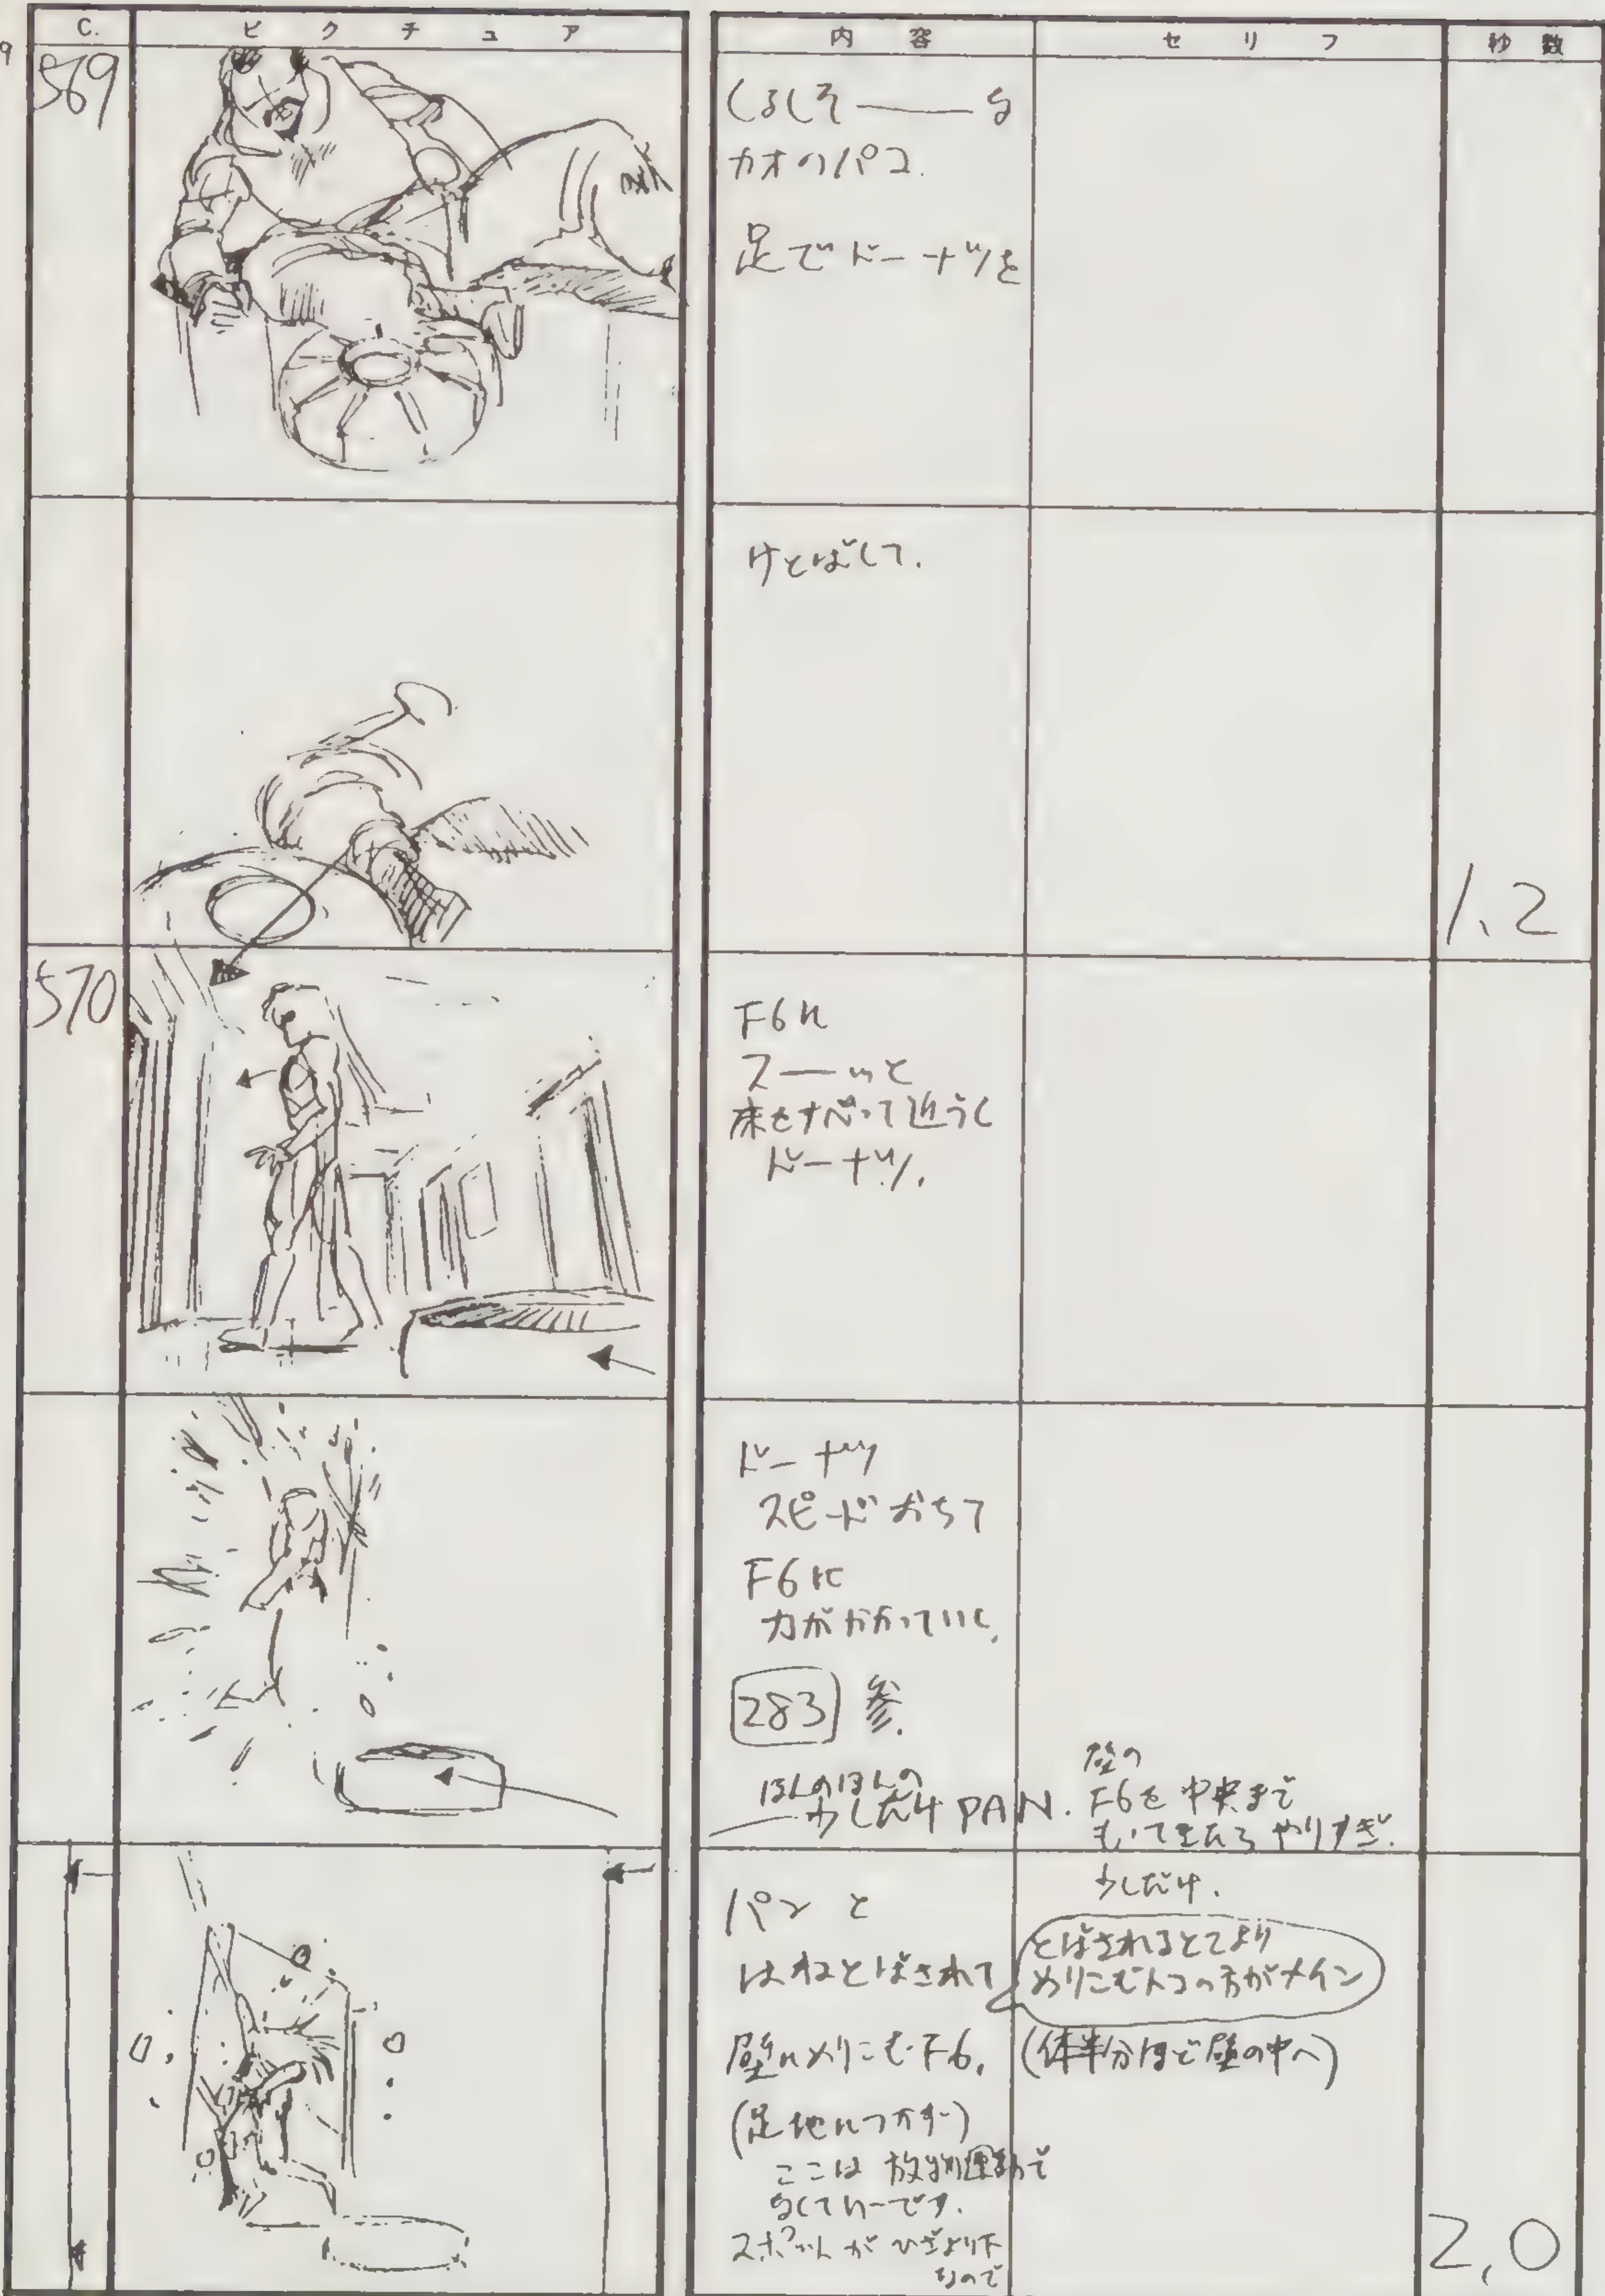 C.
ピクチュア
内容
セリフ
秒数
9
569
くるしそ――な
カオのパコ.
足でドーナツを
けとばして.
1.2
570
F6に
スーーッと
床をすべって近づく
ドーナツ.
ドーナツ
スピードおちて
F6に
力がかかっていく.
283 参.
ほんのほんの
少しだけPAN.
壁の
F6を中央まで
もってきたらやりすぎ.
少しだけ.
パンと
はねとばされて
とばされるとこより
めりこむトコの方がメイン
壁にめりこむF6.
(体半分ほど壁の中へ)
(足地につかず)
ここは放物運動で
なくていーです.
スポットがひざより下
なので
2,0